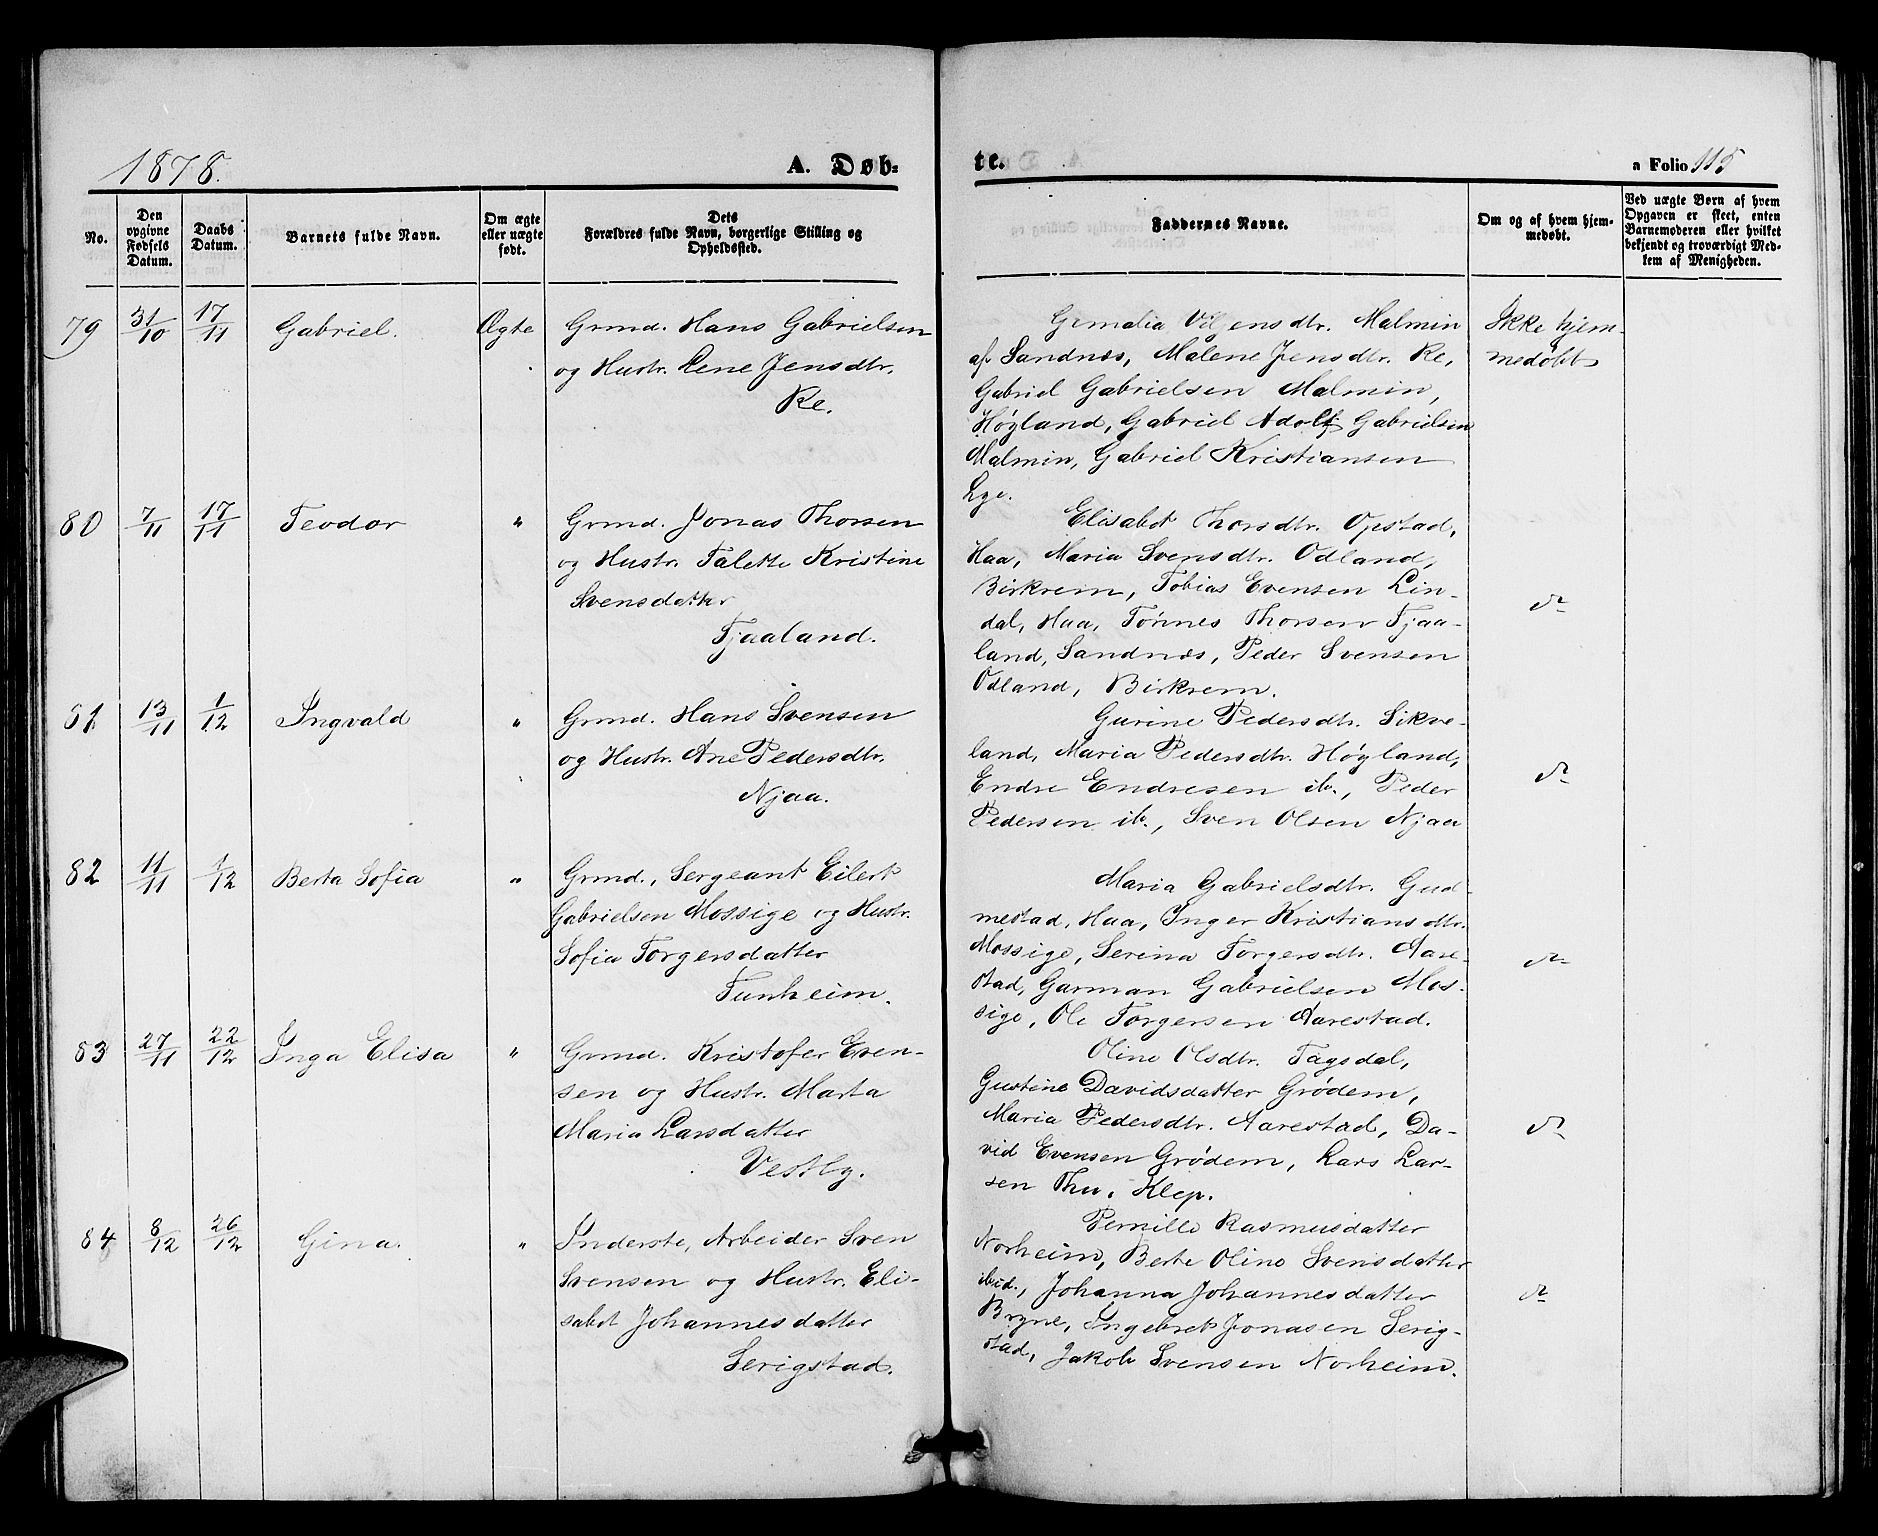 1878.
A. Døb-
te.
a Folio 115
No.
Den
opgivne
Fødsels
Datum.
Daabs
Datum.
Barnets fulde Navn.
Om ægte
eller uægte
født.
Dets
Forældres fulde Navn, borgerlige Stilling og
Opholdssted.
Faddernes Navne.
Om og af hvem hjem-
medøbt.
Ved uægte Børn af hvem
Opgaven er skeet, enten
Barnemoderen eller hvilket
bekjendt og troværdigt Med-
lem af Menigheden.
79
31/10
17/11
Gabriel.
Ægte
Grmd. Hans Gabrielsen
og Hustr. Lene Jensdtr.
Re.
Gemalia Viljensdtr. Malmin
af Sandnæs, Malene Jensdtr. Re,
Gabriel Gabrielsen Malmin,
Høyland, Gabriel Adolf Gabrielsen
Malmin, Gabriel Kristiansen
Lye.
Ikke hjem-
medøbt
80
7/11
17/11
Teodor
"
Grmd. Jonas Thorsen
og Hustr. Talette Kristine
Svensdatter
Tjaaland.
Elisabet Thorsdtr. Opstad,
Haa, Maria Svensdtr. Odland,
Birkrem, Tobias Evensen Lin-
dal, Haa, Tønnes Thorsen Tjaa-
land, Sandnæs, Peder Svensen
Odland, Birkrem.
do
81
13/11
1/12
Ingvald
"
Grmd. Hans Svensen
og Hustr. Ane Pedersdtr.
Njaa.
Gurine Pedersdtr. Sikve-
land, Maria Pedersdtr. Høyland,
Endre Endresen ib., Peder
Pedersen ib., Sven Olsen Njaa
do
82
11/11
1/12
Berta Sofia
"
Grmd., Sergeant Eilert
Gabrielsen Mossige og Hustr.
Sofia Torgersdatter
Tunheim.
Maria Gabrielsdtr. Gud-
mestad, Haa, Inger Kristiansdtr.
Mossige, Serina Torgersdtr. Aare-
stad, Garman Gabrielsen Mos-
sige, Ole Torgersen Aarestad.
do
83
27/11
22/12
Inga Elisa
"
Grmd. Kristofer Even-
sen og Hustr. Marta
Maria Larsdatter
Vestly.
Oline Olsdtr. Tagsdal,
Gustine Davidsdatter Grødem,
Maria Pedersdtr. Aarestad, Da-
vid Evensen Grødem, Lars Lar-
sen Thu, Klep.
do
84
8/12
26/12
Gina.
"
Inderste, Arbeider Sven
Svensen og Hustr. Eli-
sabet Johannesdatter
Serigstad.
Pernille Rasmusdatter
Norheim, Berte Oline Svensdatter
ibid., Johanna Johannesdatter
Bryne, Ingebret Jonasen Serig-
stad, Jakob Svensen Norheim.
do